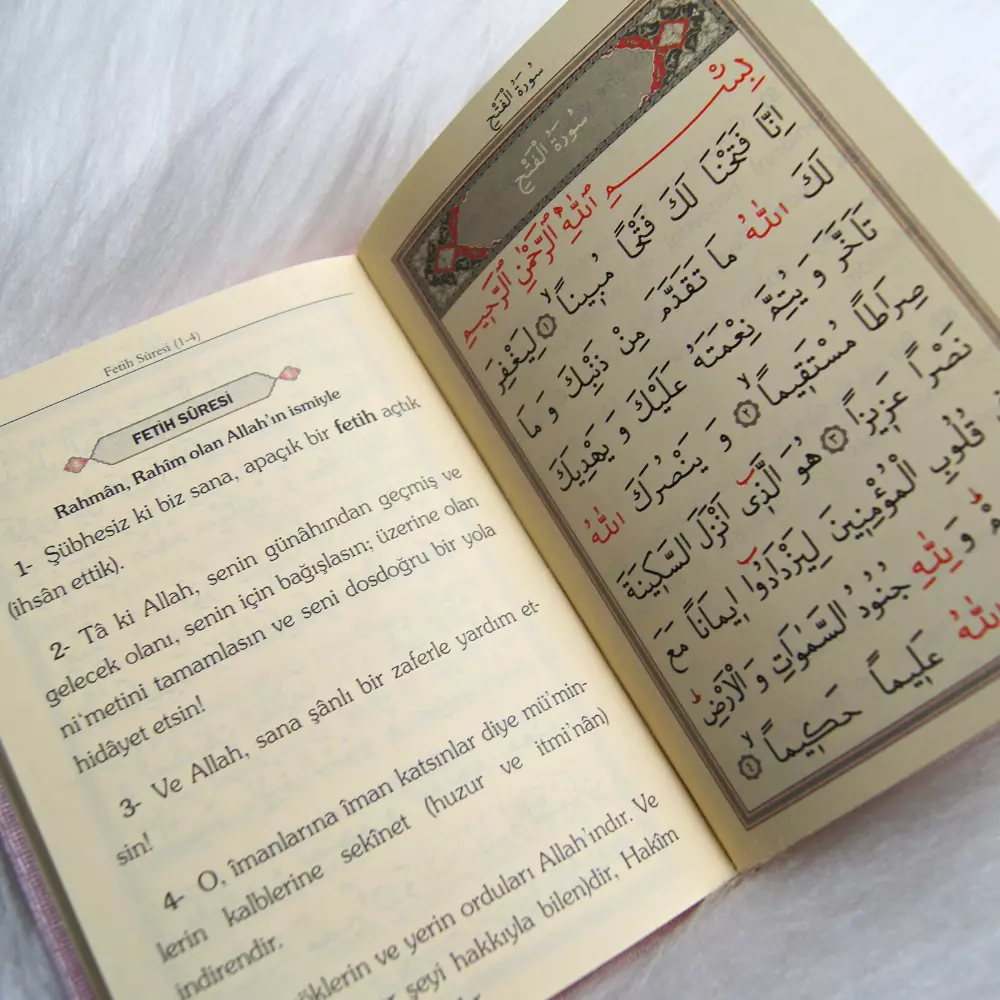 Fetih Sûresi (1-4)
FETİH SÛRESİ
Rahmân, Rahîm olan Allah'ın ismiyle
1- Şübhesiz ki biz sana, apaçık bir fetih açtık
(ihsân ettik).
2- Tâ ki Allah, senin günâhından geçmiş ve
gelecek olanı, senin için bağışlasın; üzerine olan
ni'metini tamamlasın ve seni dosdoğru bir yola
hidâyet etsin!
3- Ve Allah, sana şânlı bir zaferle yardım et-
sin!
4- O, îmanlarına îman katsınlar diye mü'min-
lerin kalblerine sekînet (huzur ve itmi'nân)
indirendir.
yerin orduları Allah'ındır. Ve
şeyi hakkıyla bilen)dir, Hakîm
سُورَةُ الْفَتْحِ
سُورَةُ الْفَتْحِ
بِسْمِ اللّٰهِ الرَّحْمٰنِ الرَّحٖيمِ
اِنَّا فَتَحْنَا لَكَ فَتْحًا مُبٖينًا ۙ ﴿١﴾ لِيَغْفِرَ
لَكَ اللّٰهُ مَا تَقَدَّمَ مِنْ ذَنْبِكَ وَ مَا
تَاَخَّرَ وَ يُتِمَّ نِعْمَتَهُ عَلَيْكَ وَ يَهْدِيَكَ
صِرَاطًا مُسْتَقٖيمًا ۙ ﴿٢﴾ وَ يَنْصُرَكَ اللّٰهُ
نَصْرًا عَزٖيزًا ﴿٣﴾ هُوَ الَّذٖى اَنْزَلَ السَّكٖينَةَ
قُلُوبِ الْمُؤْمِنٖينَ لِيَزْدَادُوا اٖيمَانًا مَعَ
وَ لِلّٰهِ جُنُودُ السَّمٰوَاتِ وَ الْاَرْضِ
اللّٰهُ عَلٖيمًا حَكٖيمًا ۙ ﴿٤﴾